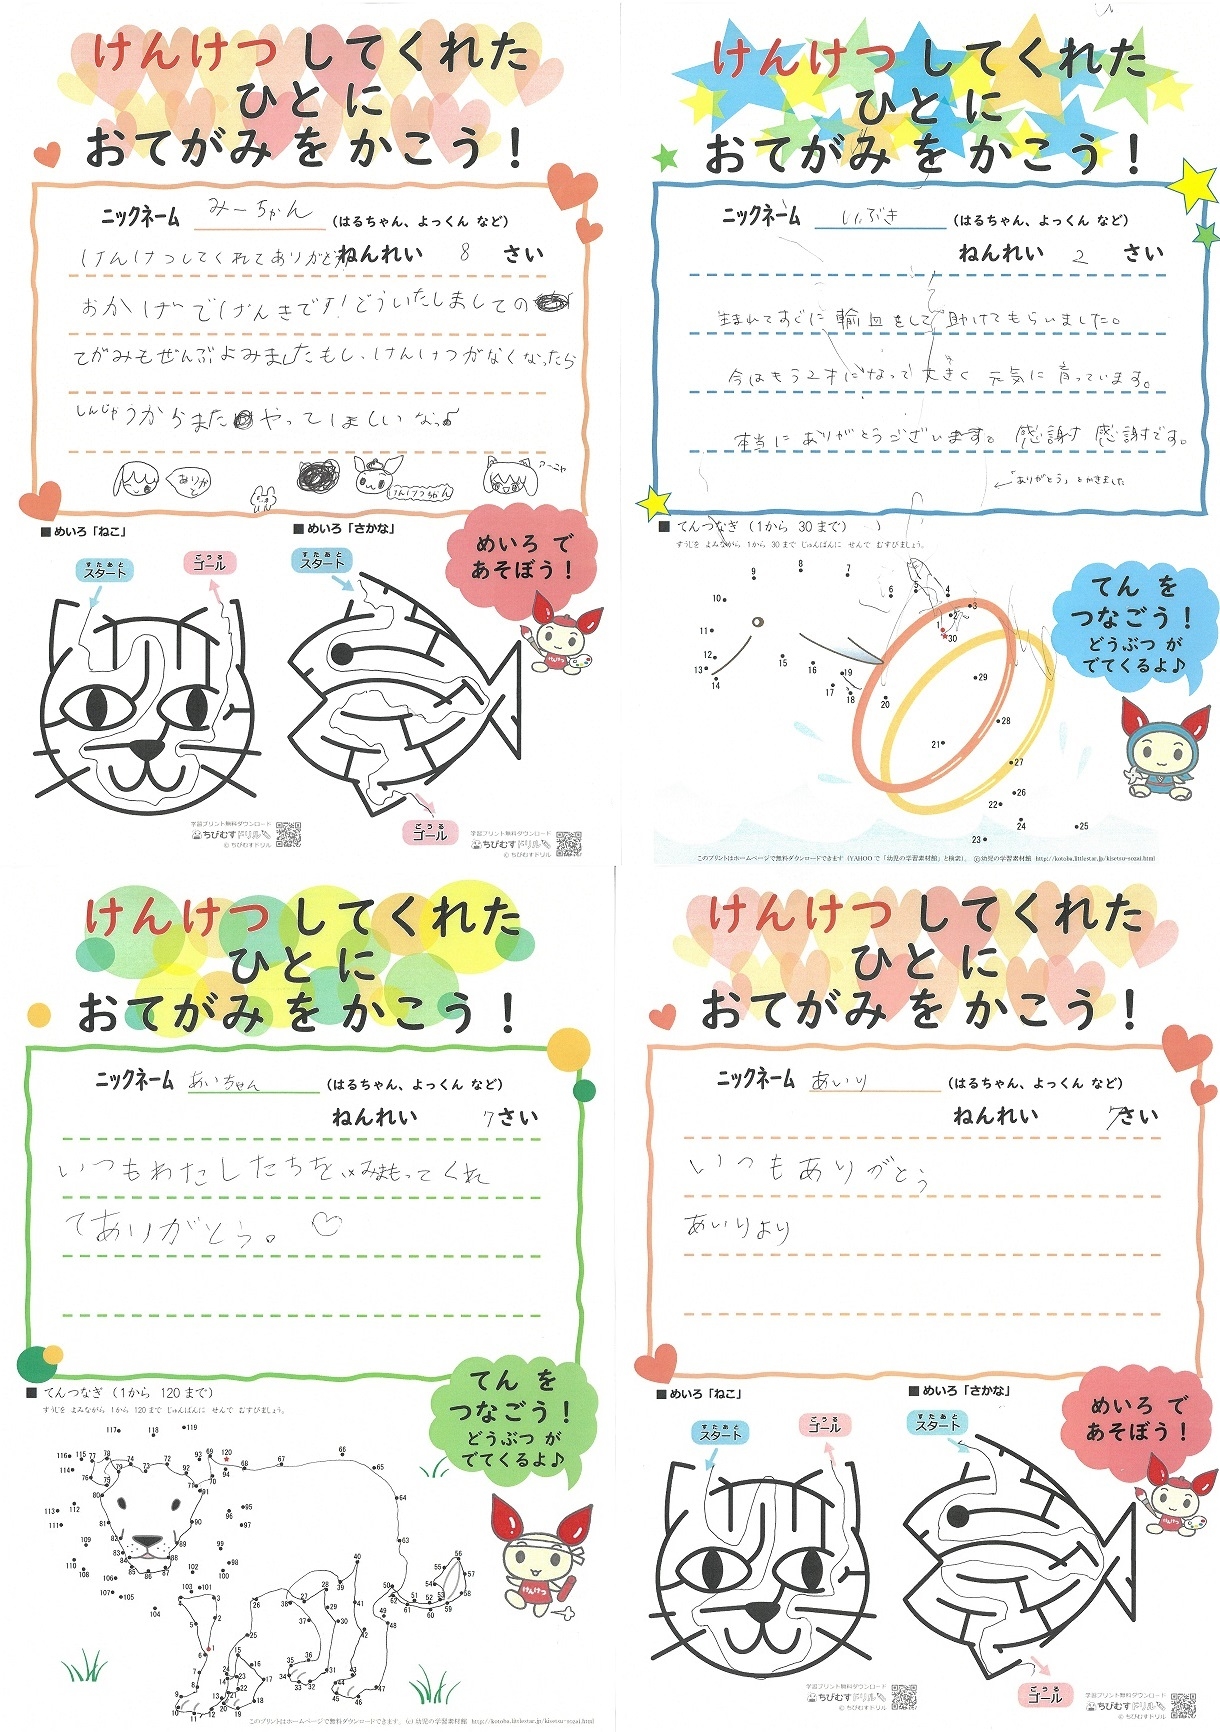 けんけつ してくれた
ひと に
おてがみ を かこう！
ニックネーム みーちゃん (はるちゃん、よっくん など)
けんけつしてくれてありがとう ねんれい 8 さい
おかげでげんきです！どういたしましての
てがみもぜんぶよみましたもし、けんけつがなくなったら
しんじゅうからまた やってほしいなっ♪
ありがと
けんけつちゃん
アーニャ
■ めいろ「ねこ」
■ めいろ「さかな」
すたあと
スタート
ごうる
ゴール
すたあと
スタート
ごうる
ゴール
めいろ で
あそぼう！
けんけつ
学習プリント無料ダウンロード
ちびむすドリル
© ちびむすドリル
学習プリント無料ダウンロード
ちびむすドリル
© ちびむすドリル
けんけつ してくれた
ひと に
おてがみ を かこう！
ニックネーム いぶき (はるちゃん、よっくん など)
ねんれい 2 さい
生まれてすぐに 輸血をして 助けてもらいました。
今はもう2才になって 大きく 元気に 育っています。
本当に ありがとうございます。 感謝 感謝です。
←「ありがとう」とかきました
■ てんつなぎ（1から 30まで）
すうじを よみながら 1から 30まで じゅんばんに せんで むすびましょう。
てん を
つなごう！
どうぶつ が
でてくるよ♪
このプリントはホームページで無料ダウンロードできます（YAHOOで「幼児の学習素材館」と検索）。 ⓒ幼児の学習素材館 http://kotoba.littlestar.jp/kisetsu-sozai.html
けんけつ してくれた
ひと に
おてがみ を かこう！
ニックネーム あいちゃん (はるちゃん、よっくん など)
ねんれい 7 さい
いつもわたしたちを みまもってくれ
てありがとう。♡
■ てんつなぎ（1から 120まで）
すうじを よみながら 1から 120まで じゅんばんに せんで むすびましょう。
てん を
つなごう！
どうぶつ が
でてくるよ♪
けんけつ
このプリントはホームページで無料ダウンロードできます」 (c) 幼児の学習素材館 http://kotoba.littlestar.jp/kisetsu-sozai.html
けんけつ してくれた
ひと に
おてがみ を かこう！
ニックネーム あいり (はるちゃん、よっくん など)
ねんれい 7 さい
いつもありがとう
あいりより
■ めいろ「ねこ」
■ めいろ「さかな」
すたあと
スタート
ごうる
ゴール
すたあと
スタート
ごうる
ゴール
めいろ で
あそぼう！
けんけつ
学習プリント無料ダウンロード
ちびむすドリル
© ちびむすドリル
学習プリント無料ダウンロード
ちびむすドリル
© ちびむすドリル